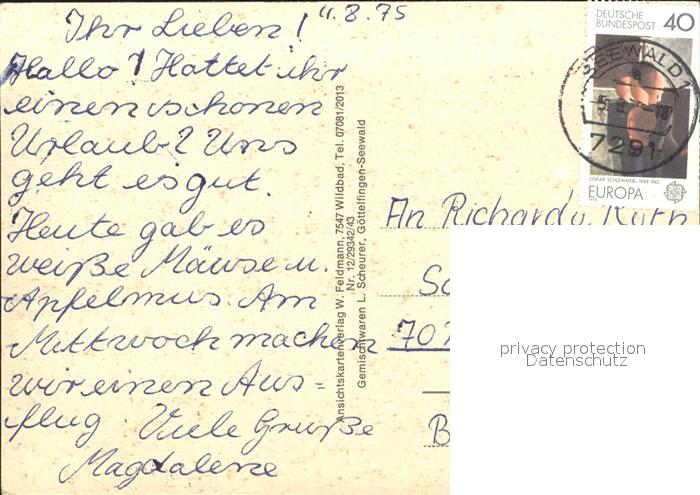 4.8.75
Ihr Lieben!
Hallo! Hattet ihr
einen schönen
Urlaub? Uns
geht es gut.
Heute gab es
weiße Mäuse u.
Apfelmus. Am
Mittwoch machen
wir einen Aus=
flug. Viele Grüße
Magdalene
Ansichtskartenverlag W. Feldmann, 7547 Wildbad, Tel. 07081/2013
Nr. 12/29342/43
Gemischtwaren L. Scheurer, Göttelfingen-Seewald
DEUTSCHE
BUNDESPOST 40
OSKAR SCHLEMMER · 1888-1943
EUROPA
SEEWALD 1
7291
An Richard u. Ruth
Sc
707
B
privacy protection
Datenschutz